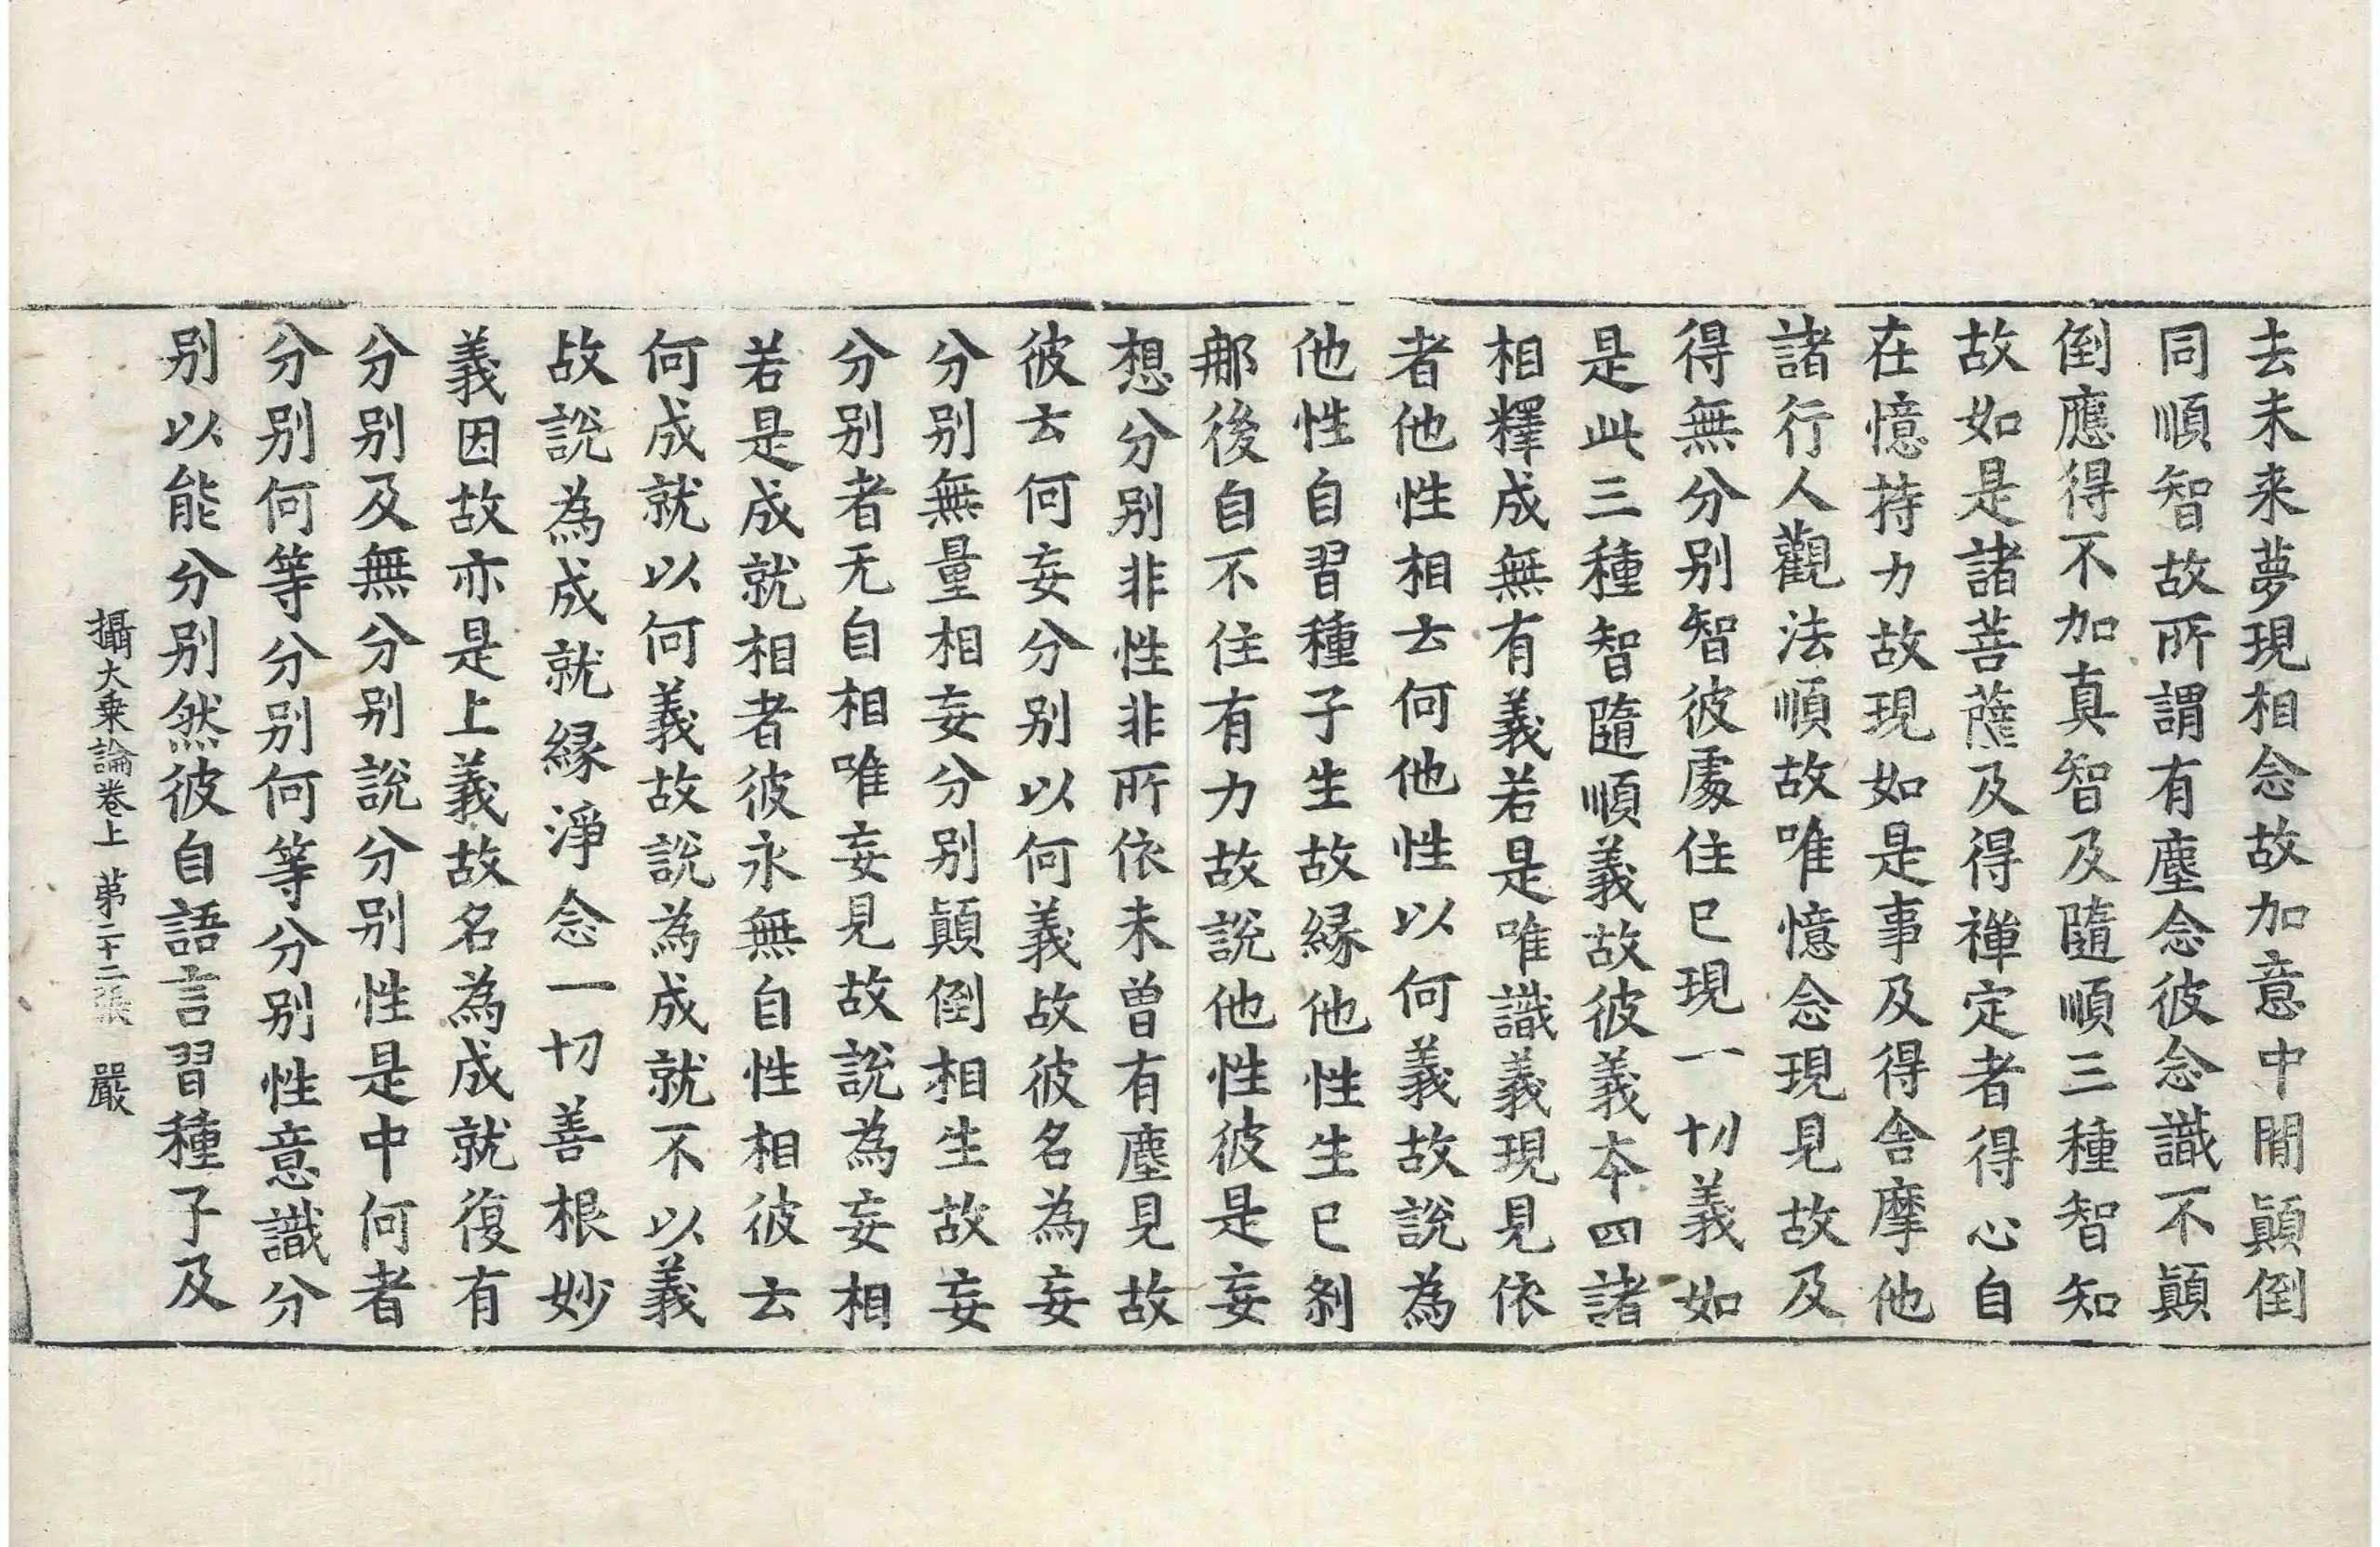 去未来夢現相念故加意中閒顚倒
同順智故所謂有塵念彼念識不顚
倒應得不加真智及隨順三種智知
故如是諸菩薩及得禪定者得心自
在憶持力故現如是事及得舍摩他
諸行人觀法順故唯憶念現見故及
得無分别智彼處住已現一切義如
是此三種智隨順義故彼義夲四諸
相釋成無有義若是唯識義現見依
者他性相云何他性以何義故說為
他性自習種子生故緣他性生已刹
那後自不住有力故說他性彼是妄
想分别非性非所依未曾有塵見故
彼云何妄分别以何義故彼名為妄
分别無量相妄分别顚倒相生故妄
分别者无自相唯妄見故說為妄相
若是成就相者彼永無自性相彼云
何成就以何義故說為成就不以義
故說為成就緣淨念一切善根妙
義因故亦是上義故名為成就復有
分别及無分别說分别性是中何者
分别何等分别何等分别性意識分
别以能分别然彼自語言習種子及
攝大乗論卷上 苐二十二張 嚴